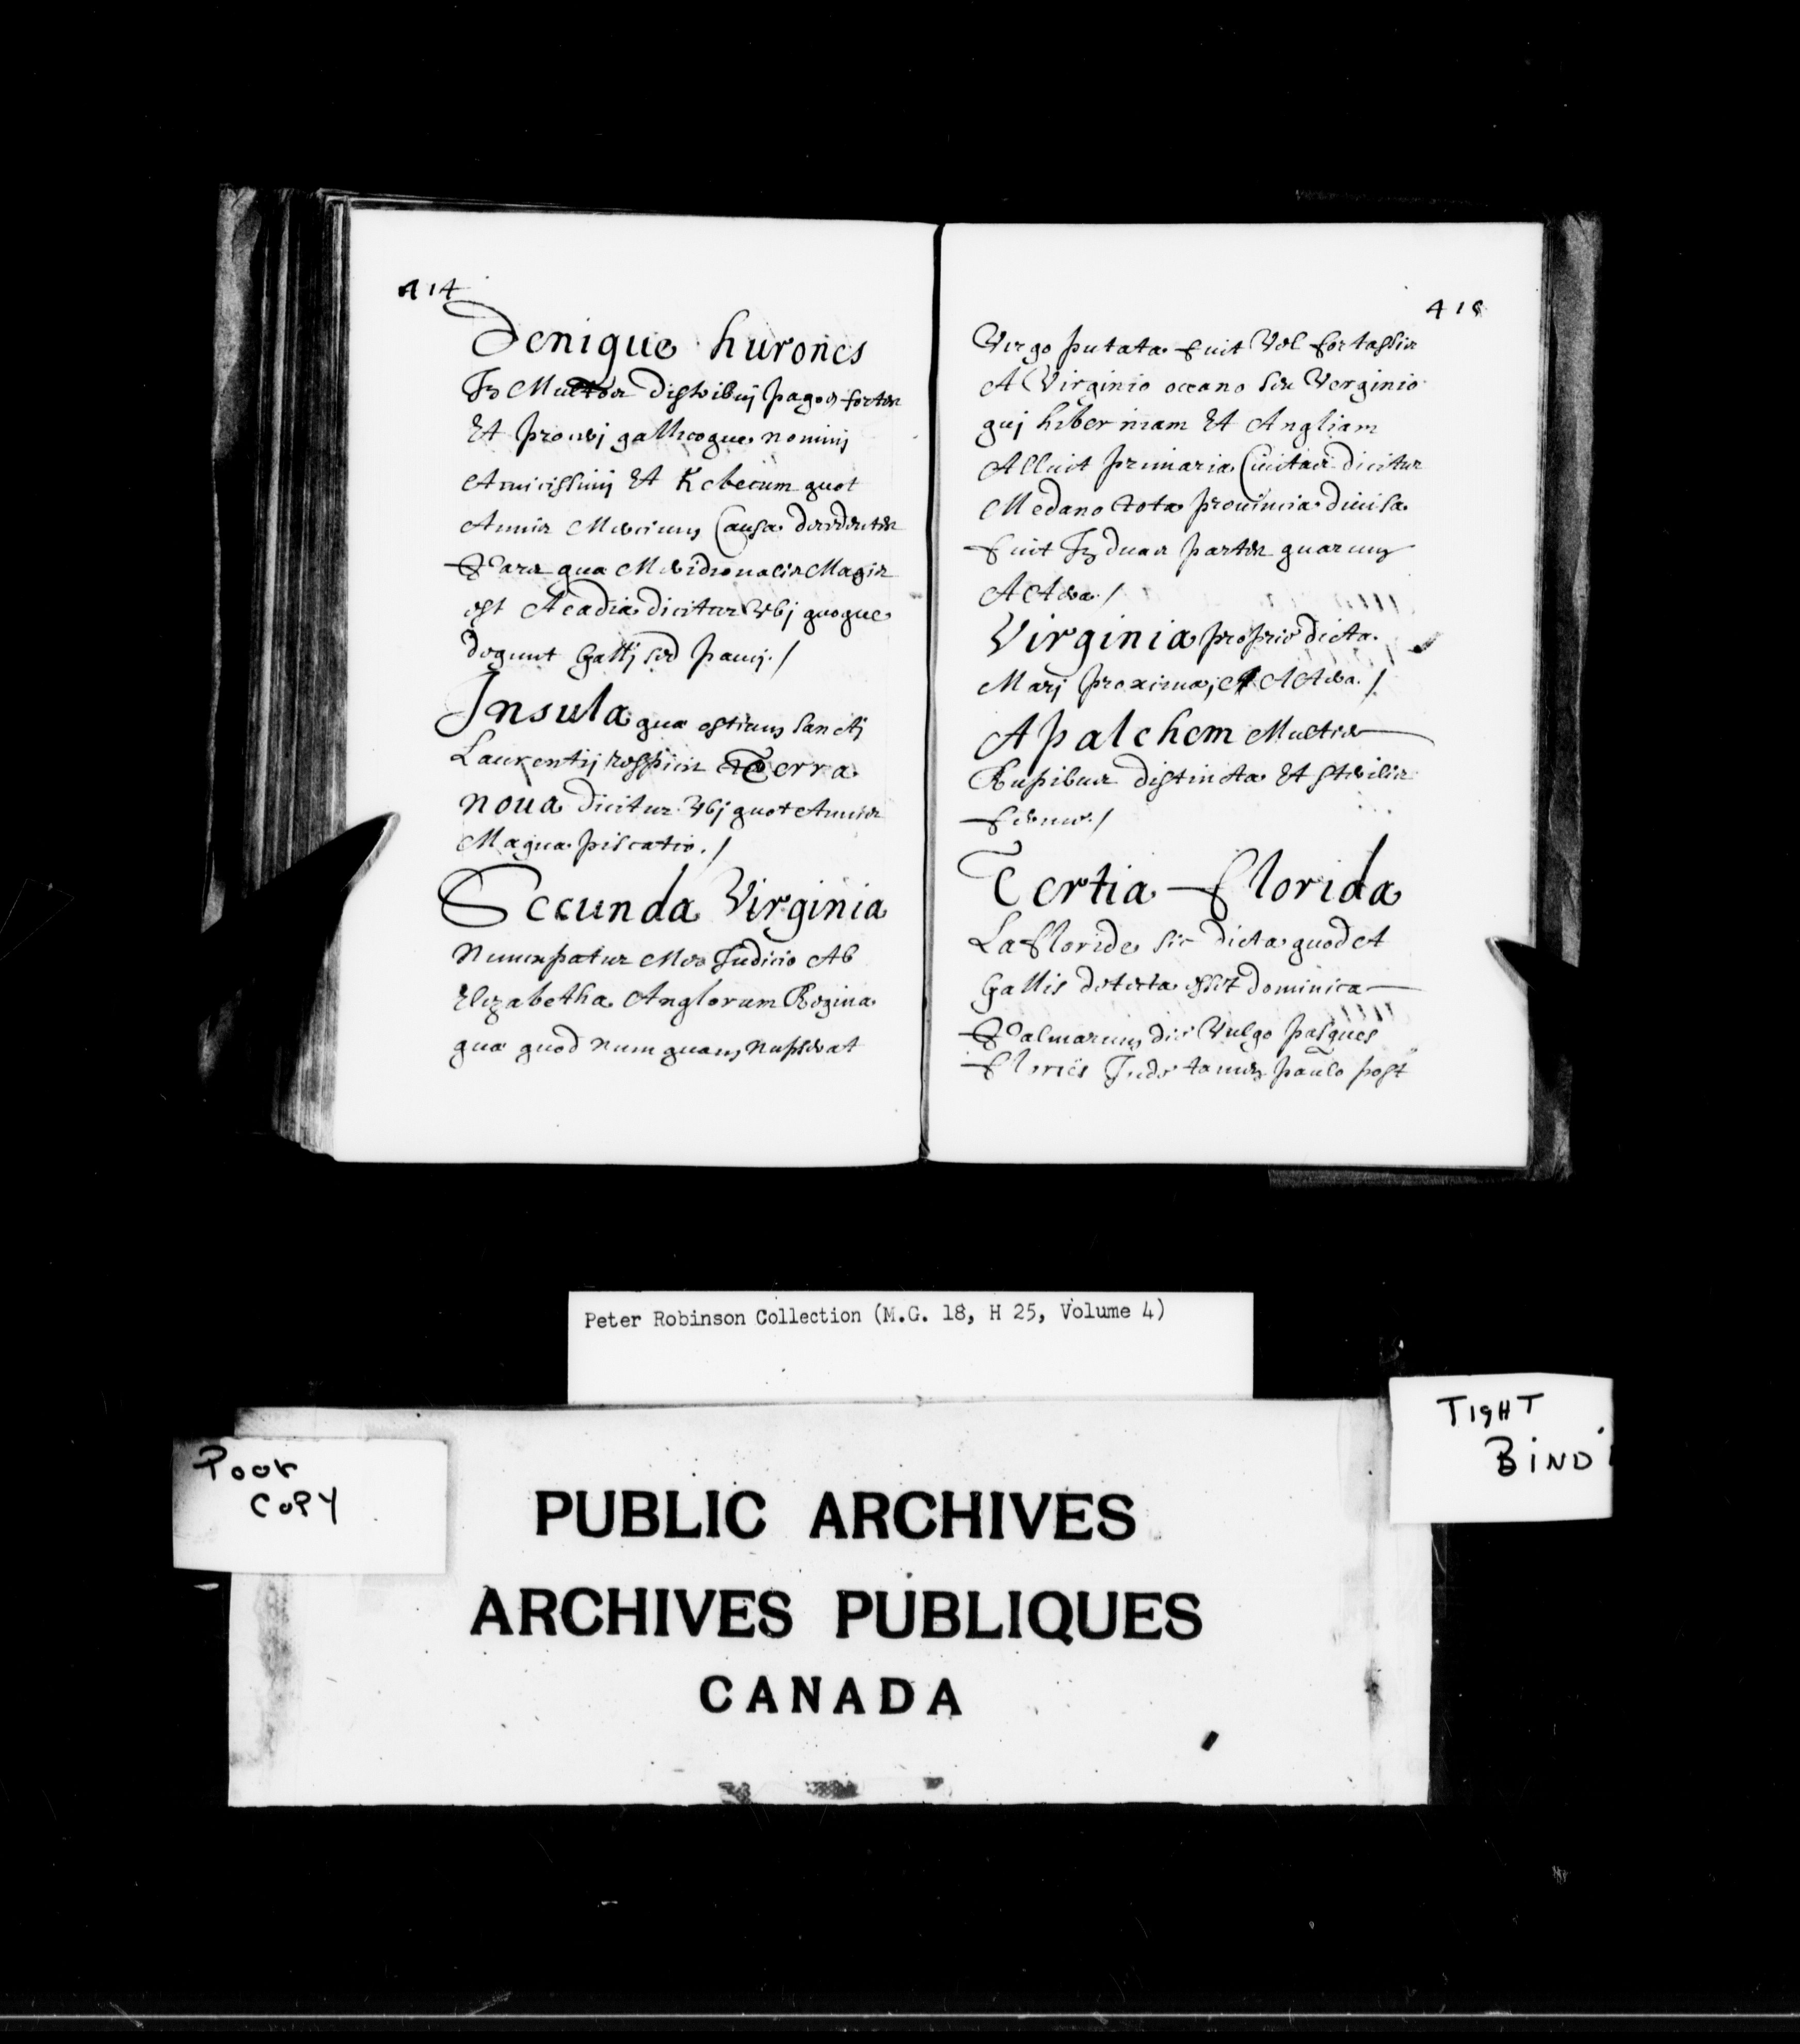 414
Denique hurones
In Multos distributj pagos fortes
Et proceri gallicoque nominj
Amicissimj Et Kebecum quot
Annis Mercium Causa descendentes
Pars quæ Meridionalis Magis
est Acadia dicitur Vbj quoque
degunt Gallj sed paucj. /
Insula quæ ostium sanctj
Laurentij respicit Terra
noua dicitur Vbj quot Annis
Magna piscatio. /
Secunda Virginia
Nuncupatur Meo Judicio Ab
Elizabetha Anglorum Regina
quæ quod numquam nupserat
415
Virgo putata fuit Vel fortassis
A Virginio oceano seu Verginio
quj hiberniam Et Angliam
Alluit primaria Ciuitas dicitur
Medano tota prouincia diuisa
fuit In duas partes quarum
Altera /
Virginia proprie dicta
Marj proxima; Altera. /
Apalchem Multis
Rupibus distincta Et sterilis
ferme. /
Tertia Florida
La floride sic dicta quod A
Gallis detecta esset dominica
Palmarum die Vulgo pasques
flories Inde tamen paulo post
Peter Robinson Collection (M.G. 18, H 25, Volume 4)
Poor
Copy
TIGHT
BIND
PUBLIC ARCHIVES
ARCHIVES PUBLIQUES
CANADA